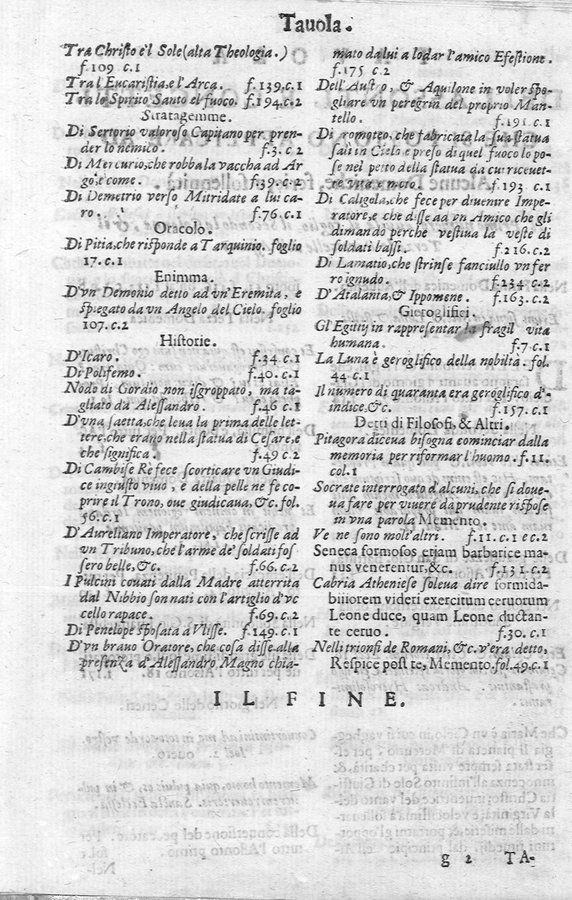 Tauola.
Tra Christo e'l Sole (alta Theologia.)
f. 109 c. 1
Tra l'Eucaristia, e l'Arca. f. 139. c. 1
Tra lo Spirito Santo el fuoco. f. 194. c. 2
Stratagemme.
Di Sertorio valoroso Capitano per pren-
der lo nemico. f. 3. c. 2
Di Mercurio, che robba la vaccha ad Ar
go, e come. f. 39. c. 2
Di Demetrio verso Mitridate a lui ca-
ro. f. 76. c. 1
Oracolo.
Di Pitia, che risponde a Tarquinio. foglio
17. c. 1
Enimma.
D'vn Demonio detto ad vn'Eremita, e
spiegato da vn Angelo del Cielo. foglio
107. c. 2
Historie.
D'Icaro. f. 34 c. 1
Di Polifemo. f. 40. c. 1
Nodo di Gordio non isgroppato, ma ta-
gliato da Alessandro. f. 46 c. 1
D'vna saetta, che leua la prima delle let-
tere, che erano nella statua di Cesare, e
che significa. f. 49 c. 2
Di Cambise Rè fece scorticare vn Giudi-
ce ingiusto viuo, e della pelle ne fe co-
prire il Trono, oue giudicaua, &c. fol.
56. c. 1
D'Aureliano Imperatore, che scrisse ad
vn Tribuno, che l'arme de' soldati fos
sero belle, &c. f. 66. c. 2
I Pulcini couati dalla Madre atterrita
dal Nibbio son nati con l'artiglio d'vc
cello rapace. f. 69. c. 2
Di Penelope sposata a Vlisse. f. 149. c. 1
D'vn brauo Oratore, che cosa disse alla
presenza d'Alessandro Magno chia-
mato da lui a lodar l'amico Efestione.
f. 175 c. 2
Dell'Austro, & Aquilone in voler spo-
gliare vn peregrin del proprio Man-
tello. f. 191. c. 1
Di Promoteo, che fabricata la sua statua
salì in Cielo e preso di quel fuoco lo po-
se nel petto della statua da cui riceuet-
te vita e moto. f. 193 c. 1
Di Caligola, che fece per diuenire Impe-
ratore, e che disse ad vn Amico che gli
dimandò perche vestiua la veste di
soldati bassi. f. 216. c. 2
Di Lamatio, che strinse fanciullo vn fer
ro ignudo. f. 234. c. 2
D'Atalanta, & Ippomene. f. 163. c. 2
Gieroglifici.
Gl'Egitij in rappresentar la fragil vita
humana. f. 7 c. 1
La Luna è geroglifico della nobiltà. fol.
44 c. 1
Il numero di quaranta era geroglifico d'-
indice, &c. f. 157. c. 1
Detti di Filosofi, & Altri.
Pitagora diceua bisogna cominciar dalla
memoria per riformar l'huomo. f. 11.
col. 1
Socrate interrogato d'alcuni, che si doue-
ua fare per viuere da prudente rispose
in vna parola Memento.
Ve ne sono molt'altri. f. 11. c. 1 e c. 2
Seneca formosos etiam barbaricę ma-
nus venerentur, &c. f. 131 c. 2
Cabria Atheniese soleua dire formida-
biliorem videri exercitum ceruorum
Leone duce, quam Leone ductan-
te ceruo. f. 30. c. 1
Nelli trionfi de Romani, &c. v'era detto,
Respice post te, Memento. fol. 49. c. 1
IL FINE.
g 2 TA-